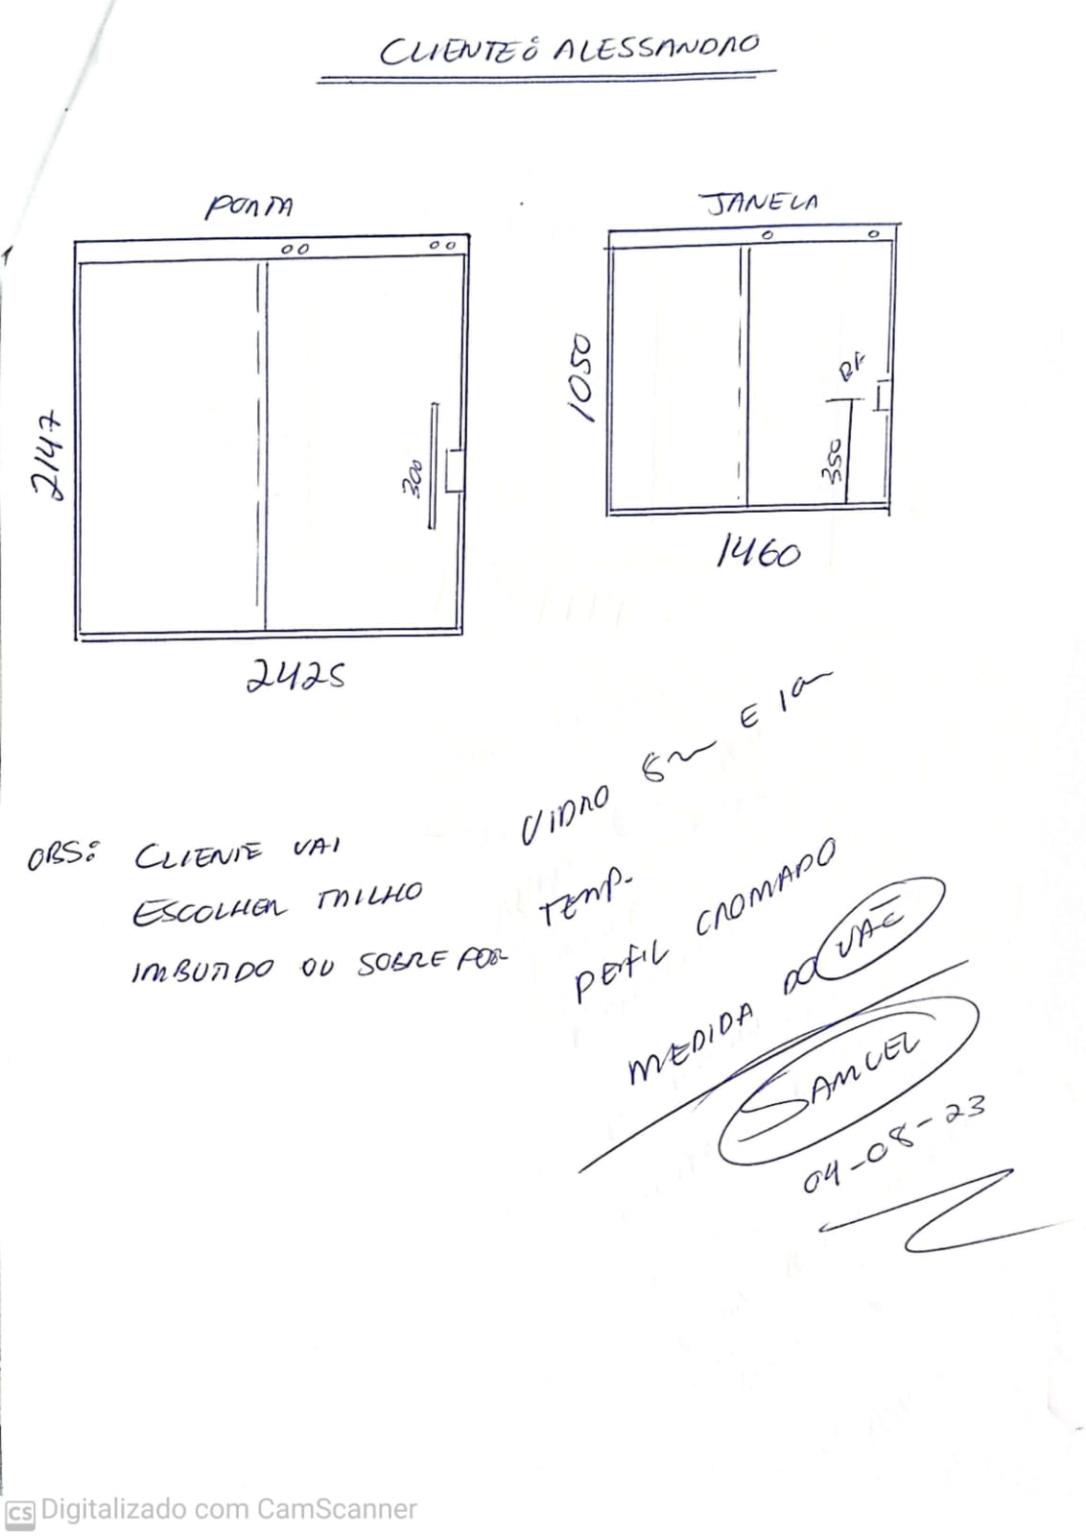 CLIENTE: ALESSANDRO
PORTA
JANELA
2147
300
2425
1050
BF
350
1460
OBS: CLIENTE VAI
ESCOLHER TRILHO
IMBUTIDO OU SOBREPOR
VIDRO 8m E 10m
TEMP.
PERFIL CROMADO
MEDIDA DO VÃO
SAMUEL
04-08-23
CS Digitalizado com CamScanner